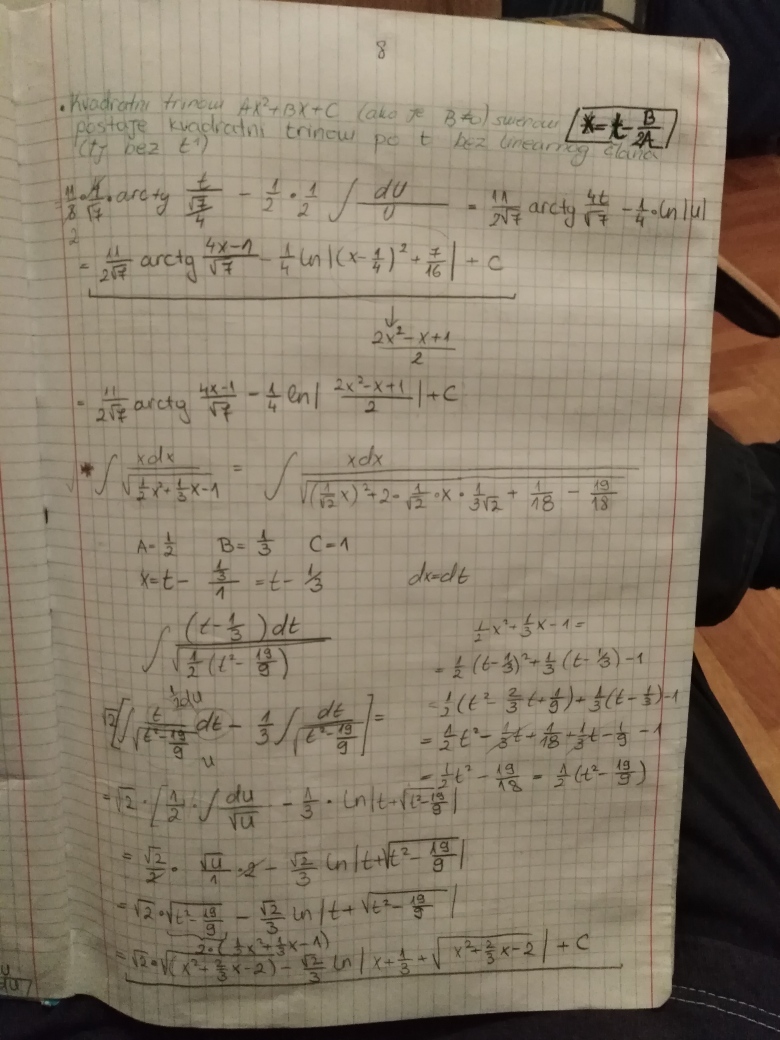 8
• Kvadratni trinom AX²+BX+C (ako je B≠0) smenom x=t-B/2A
postaje kvadratni trinom po t bez linearnog člana
(tj bez t¹)
= 11/8 · 4/√7 · arctg t/(√7/4) - 1/2 · 1/2 ∫ du/u = 11/2√7 arctg 4t/√7 - 1/4 · ln|u|
2
= 11/2√7 arctg (4x-1)/√7 - 1/4 ln|(x-1/4)² + 7/16| + C
↓
(2x²-x+1)/2
= 11/2√7 arctg (4x-1)/√7 - 1/4 ln| (2x²-x+1)/2 | + C
* ∫ xdx/√(1/2x²+1/3x-1) = ∫ xdx/√((1/√2 x)²+2·1/√2·x·1/3√2 + 1/18 - 19/18)
A=1/2 B=1/3 C=1
x=t- (1/3)/1 = t-1/3 dx=dt
∫ (t-1/3)dt/√(1/2(t²-19/9))
1/2x²+1/3x-1=
= 1/2(t-1/3)²+1/3(t-1/3)-1
= 1/2(t²-2/3t+1/9)+1/3(t-1/3)-1
= 1/2t²-1/3t+1/18+1/3t-1/9-1
= 1/2t²-19/18 = 1/2(t²-19/9)
1/2du
√2[∫ t/√(t²-19/9) dt - 1/3 ∫ dt/√(t²-19/9)] =
u
= √2·[1/2·∫ du/√u - 1/3·ln|t+√(t²-19/9)|
= √2/2 · √u/1 · 2 - √2/3 ln|t+√(t²-19/9)|
= √2·√(t²-19/9) - √2/3 ln|t+√(t²-19/9)|
2·(1/2x²+1/3x-1)
= √2·√(x²+2/3x-2) - √2/3 ln|x+1/3+√(x²+2/3x-2)| + C
du